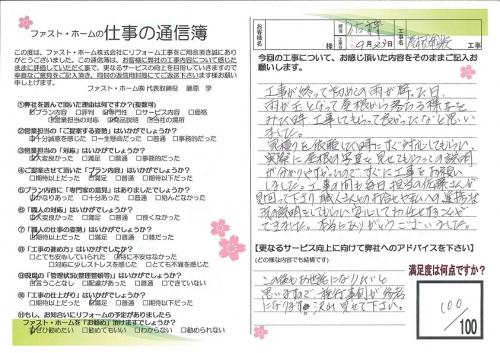 ファスト・ホームの仕事の通信簿
この度は、ファスト・ホーム株式会社にリフォーム工事をご用命頂き誠にあり
がとうございました。この通信簿は、お客様に弊社の工事内容について感じた
ままに評価していただく事で、更なるサービスの向上を目指していきますので
率直なご意見をご記入頂き、同封の返信用封筒にてご返送下さいます様お願い
申し上げます。
ファスト・ホーム㈱ 代表取締役 藤原 学
①弊社を選んで頂いた理由は何ですか?(複数可)
プラン内容 □評判 専門性 □サービス内容 □価格
営業担当の対応 商品説明 □当社の場所
②営業担当の「ご提案する姿勢」はいかがでしょうか?
十分誠意を感じた □一生懸命だった □普通 □事務的だった
③営業担当の「対応」はいかがでしょうか?
大変満足 □満足 □普通 □事務的
④ご提案させて頂いた「プラン内容」はいかがでしょうか?
□期待以上だった 満足 □普通 □期待以下だった
⑤プラン内容に「専門家の意見」はありましたでしょうか?
かなりあった □十分あった □普通 □殆んどなかった
⑥「職人の対応」はいかがでしょうか?
大変満足 □満足 □普通 □良くなかった
⑦「職人の仕事の姿勢」はいかがでしょうか?
大変満足 □満足 □普通 □期待以下
⑧「工事の進め方」はいかがでしたか?
□とても安心していられた 特に不安はなかった
□対応に少し不満を感じた □とても不満を感じた
⑨現場の「管理状況(整理整頓等)」はいかがでしょうか?
言うことなし □配慮があった □普通 □期待以下
⑩「工事の仕上がり」はいかがでしょうか?
□期待以上だった 満足だった □普通 □期待以下
⑪もし、お知合いにリフォームの予定がありましたら
ファスト・ホームを「お勧め」頂けますでしょうか?
ぜひ勧めたい □勧めてもいい □わからない □勧められない
お客様名
様
9月23日
工事
今回の工事について、お感じ頂いた内容をそのままご記入お
願いします。
工事が終って初めての雨が降った日、
雨がえとなって屋根から落ちる様子を
みた時 工事してもらって良かったなと思い
ました。
見積りを依頼した時に すぐ対応してもらい、
実際に屋根の写真を見せてもらっての説明
が分かりやすかったので すぐに工事をお願い
しました。工事の間も毎日担当の佐藤さんが
【更なるサービス向上に向けて弊社へのアドバイスを下さい】
(どの様な内容でも結構です)
この後もお世話になりたいと
思いますので 施行事例が参考
になります。沢山見せて下さい。
満足度は何点ですか?
100
/100